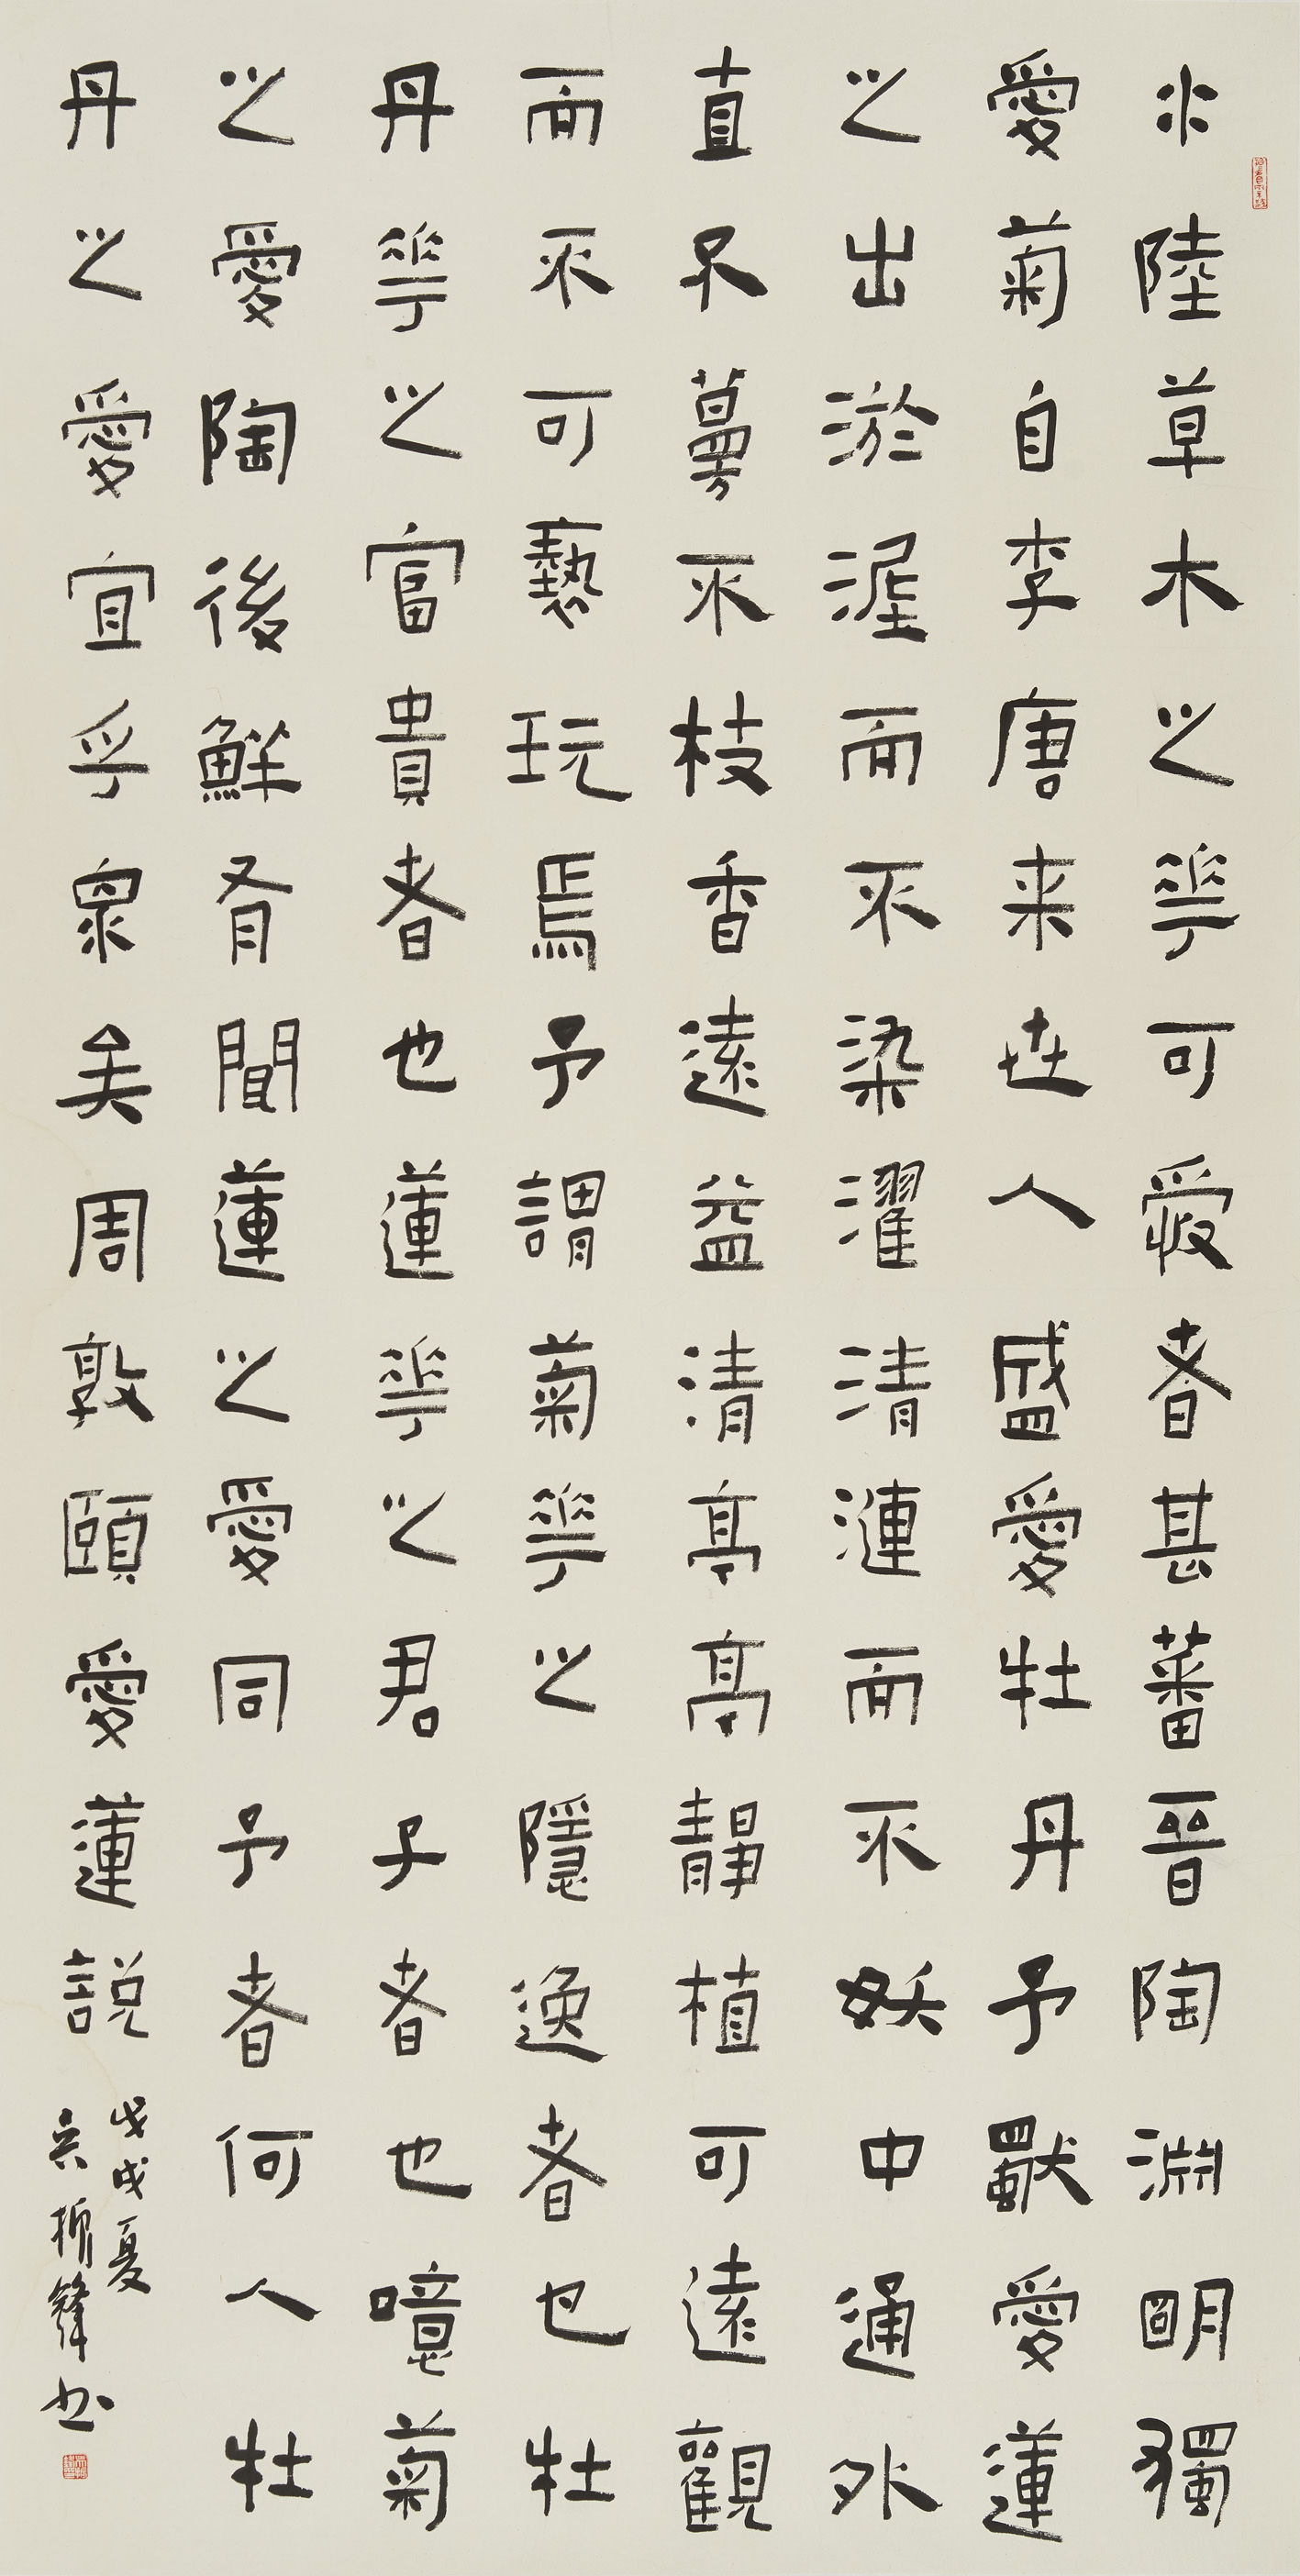 水陸草木之華可愛者甚蕃晉陶淵明獨
愛菊自李唐来世人盛愛牡丹予獨愛蓮
之出淤泥而不染濯清漣而不妖中通外
直不蔓不枝香遠益清亭亭靜植可遠觀
而不可褻玩焉予謂菊華之隱逸者也牡
丹華之富貴者也蓮華之君子者也噫菊
之愛陶後鮮有聞蓮之愛同予者何人牡
丹之愛宜乎眾矣周敦頤愛蓮説
戊戌夏
吴柳鋒书